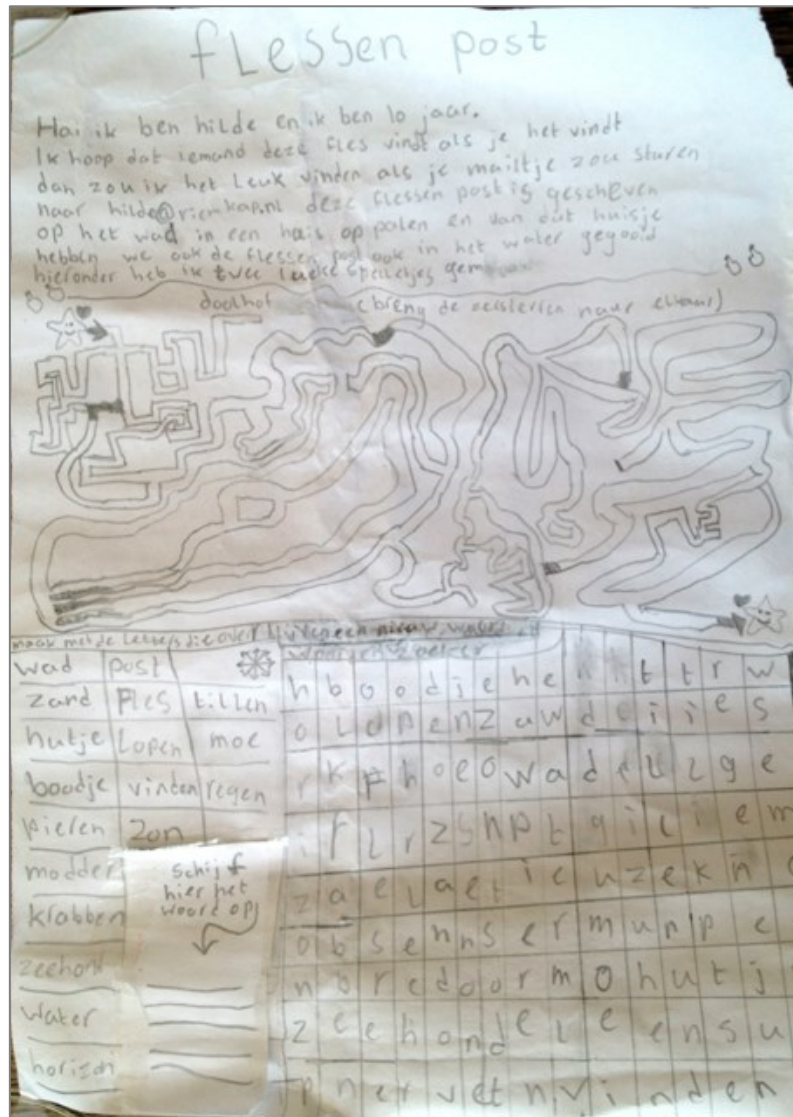 fLessen post
Hai ik ben hilde en ik ben 10 jaar.
Ik hoop dat iemand deze fles vindt als je het vindt
dan zou ik het Leuk vinden als je mailtje zou sturen
naar hilde@riemkap.nl deze flessen post is gescheven
op het wad in een huis op palen en van dat huisje
hebben we ook de flessen post ook in het water gegooid
hieronder heb ik twee leuke spelletjes
doolhof (breng de zeesterren naar elkaar)
maak met de letters die over blijven een nieuw woord
woorden zoeker
wad post
zand fles tillen
hutje Lopen moe
boodje vinden regen
pieren zon
modder
krabben
zeehond
water
horizon
Schijf
hier het
woord op
h b o o d j e h e t t r w
o L o p e n z a w d i i e s
r k p h o e o w a d e l z g e
i f l r z s n p t g i c i e m
z a e l a e t i c u z e k n
o b s e n n s e r m u n p e
n o r e d o o r m o h u t j
z e e h o n d e l e e n s u
p n e r v e t n v i n d e n